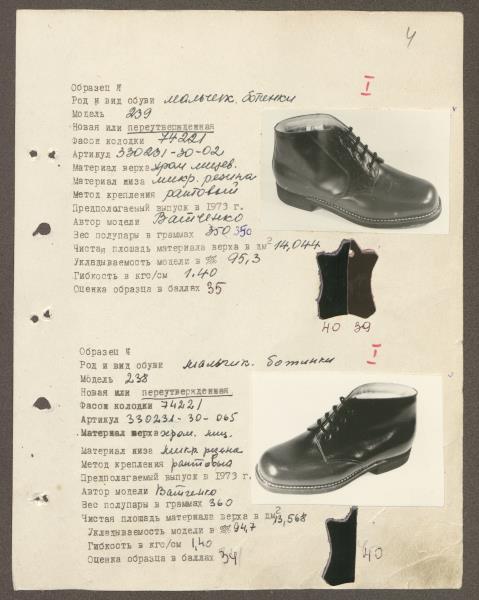 4
I
Образец №
Род и вид обуви мальчик. ботенки
Модель 239
Новая или переутвержденная
Фасон колодки 74221
Артикул 330231-30-02
Материал верха хром лицев.
Материал низа микр. резина
Метод крепления рантовый
Предполагаемый выпуск в 1973 г.
Автор модели Ватченко
Вес полупары в граммах 350 350
Чистая площадь материала верха в дм² 14,044
Укладываемость модели в % 95,3
Гибкость в кгс/см 1.40
Оценка образца в баллах 35
40 39
I
Образец №
Род и вид обуви мальчик. ботинки
Модель 238
Новая или переутвержденная
Фасон колодки 74221
Артикул 330231-30-065
Материал верха хром. лиц.
Материал низа микр рзина
Метод крепления рантовый
Предполагаемый выпуск в 1973 г.
Автор модели Ватченко
Вес полупары в граммах 360
Чистая площадь материала верха в дм² 13,568
Укладываемость модели в % 94,7
Гибкость в кгс/см 1,40
Оценка образца в баллах 34
40